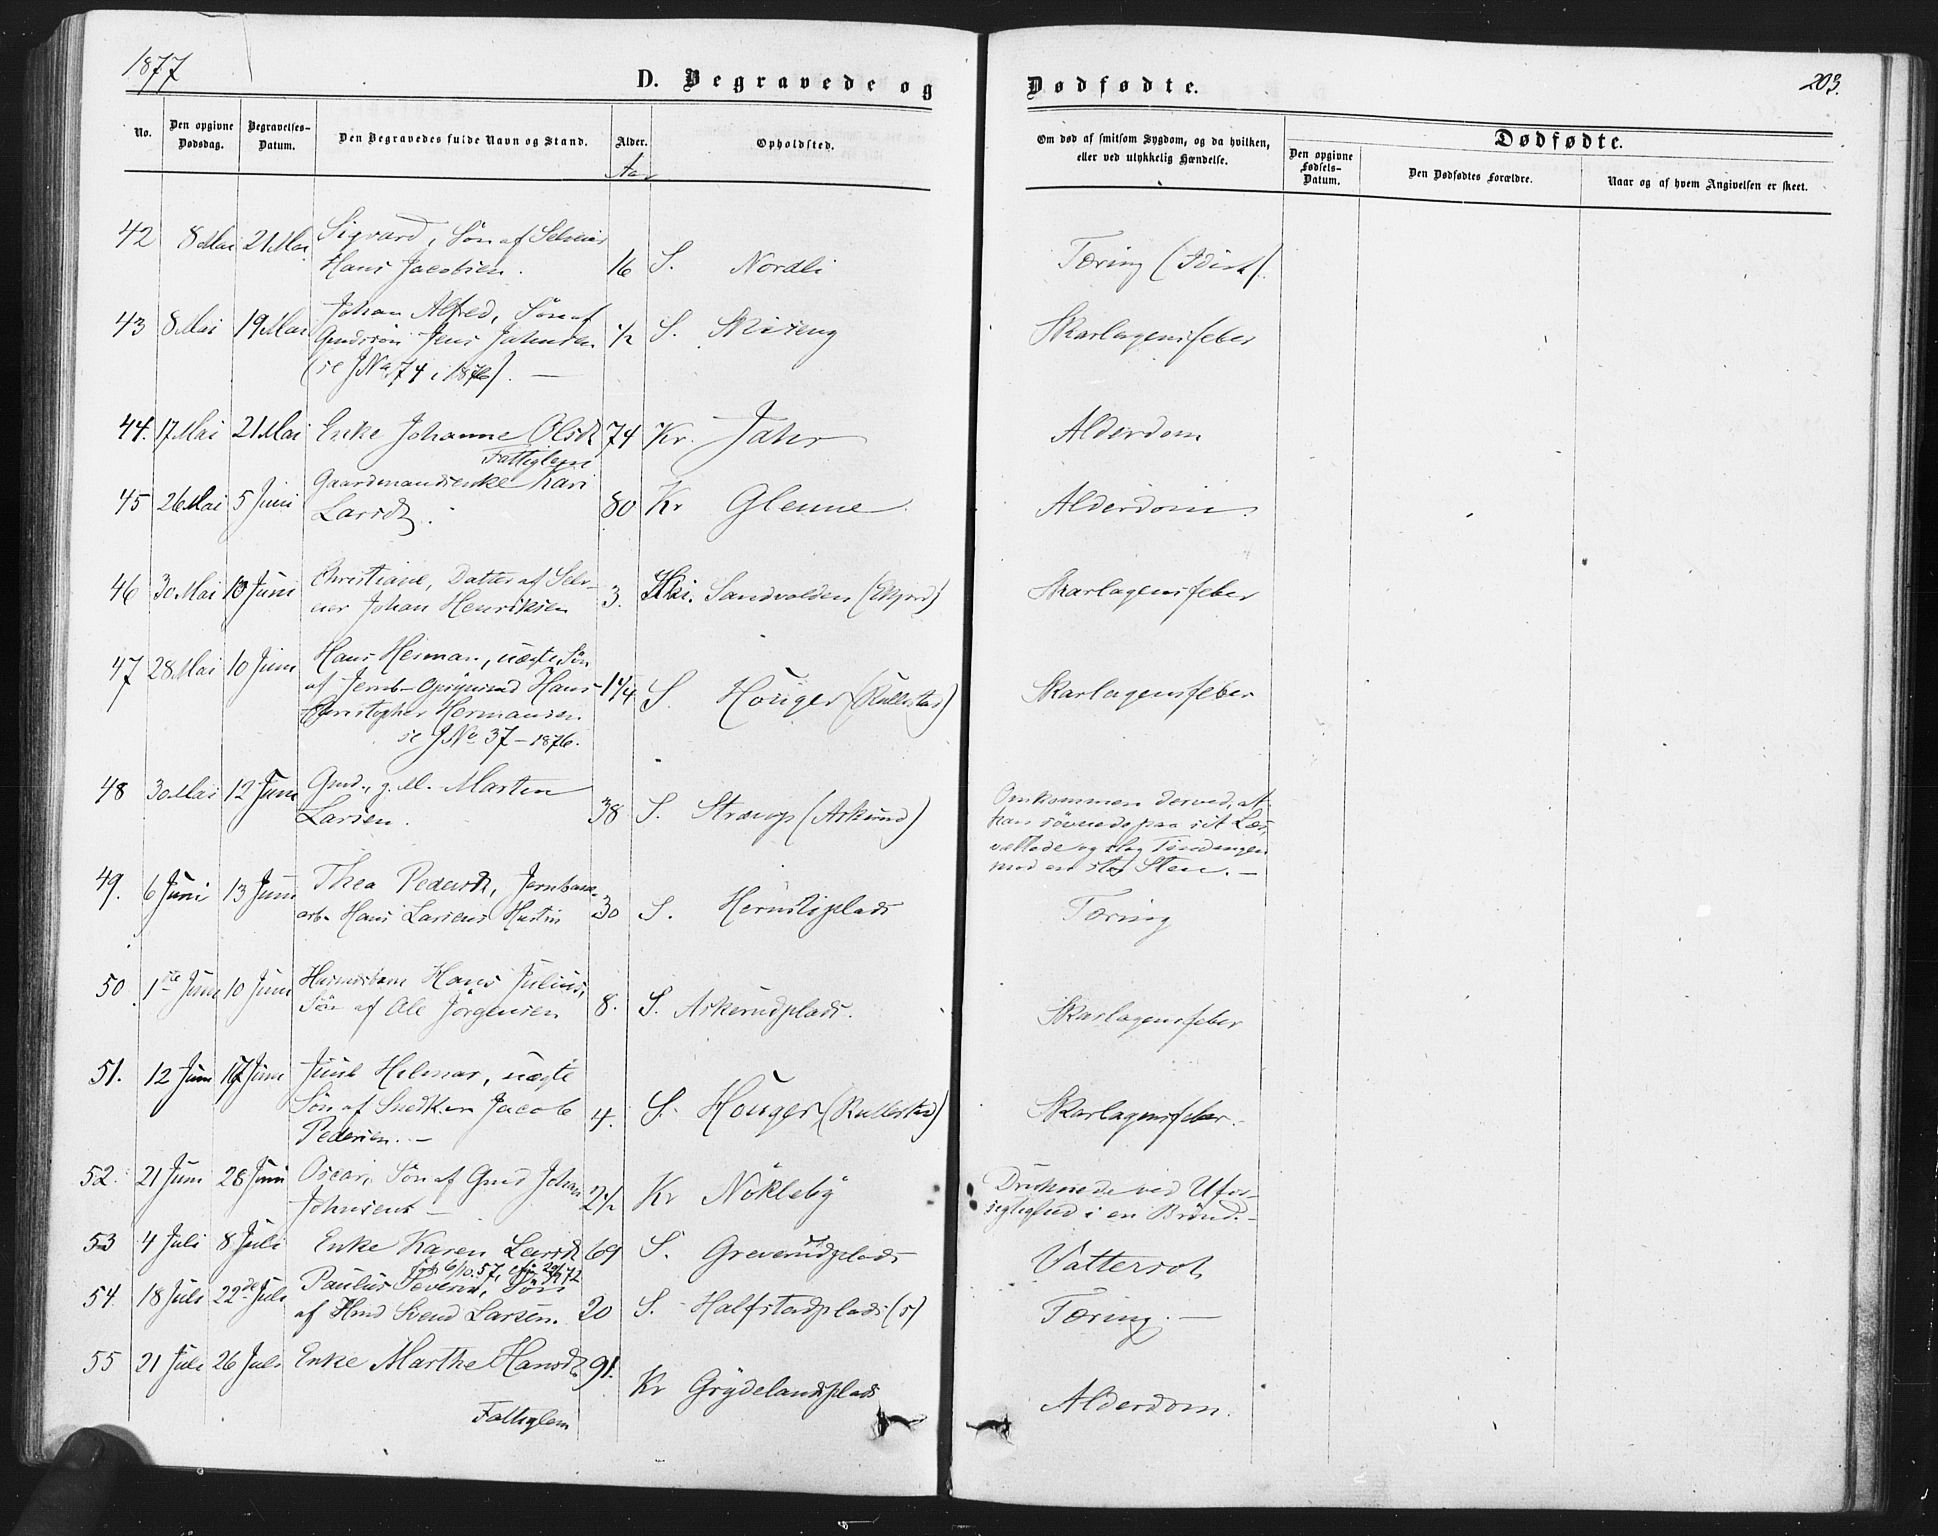 1877
D. Begravede og
Dødfødte.
203.
No.
Den opgivne Dødsdag.
Begravelses-Datum.
Den Begravedes fulde Navn og Stand.
Alder.
Aar
Opholdsted.
Om død af smitsom Sygdom, og da hvilken,
eller ved ulykkelig Hændelse.
Dødfødte.
Den opgivne Fødsels-Datum.
Den Dødfødtes Forældre.
Naar og af hvem Angivelsen er skeet.
42 8 Mai 21 Mai Sigvard, Søn af Selveier
Hans Jacobsen. 16 S. Nordli Tæring
43 8 Mai 19 Mai Johan Alfred, Søn af
Jens Johnsen 1/2 S. Skarlagensfeber
(se JNo 74 i 1876). —
44. 17 Mai 21 Mai Enke Johanne Olsdt 74 Kr. Jahr Alderdom
Fattiglem
45 26 Mai 5 Juni Gaardmandsenke Kari
Larsdt. 80 Kr Glenne Alderdom.
46 30 Mai 10 Juni Christiane, Datter af Selv-
eier Johan Henriksen 3. Ski. Sandvolden Skarlagensfeber
47 28 Mai 10 Juni Hans Herman, uægte Søn
af Jernb-Opsynsmd Hans
Christopher Hermansen 1 1/4 S Houger (Kullestad) Skarlagensfeber
se JNo 37 – 1876.
48 30 Mai 12 Juni Gmd., g. M. Marten
Larsen. 38 S. (Askerud) Omkommen derved, at
han søvnede paa sit Læs,
væltede og slog Tindingen
mod en stor Sten. —
49. 6 Juni 13 Juni Thea Pedersdt, Jernbane-
arb. Hans Larsens Hustru 30 S. Tæring
50 1ste Juni 10 Juni Husmdsbarn Hans Julius,
Søn af Ole Jørgensen 8. S. Askerudplads. Skarlagensfeber
51. 12 Juni 17 Juni Juul Helmar, uægte
Søn af Snedker Jacob
Pedersen. — 4. S. Houger (Kullestad) Skarlagensfeber.
52. 21 Juni 28 Juni Oscar, Søn af Gmd Johan
Johnsens — 2 1/2 Kr Nøkleby Druknede ved Ufor-
sigtighed i en Brønd. —
53 4 Juli 8 Juli Enke Karen Larsdt 69 S. Greverudplads Vattersot
54. 18 Juli 22de Juli Paulus Severin, Søn
af Hmd Svend Larsen. 20 S. Halfstadplads (s) Tæring. —
55 21 Juli 26 Juli Enke Marthe Hansdt. 91. Kr Grydelandsplads Alderdom.
Fattiglem